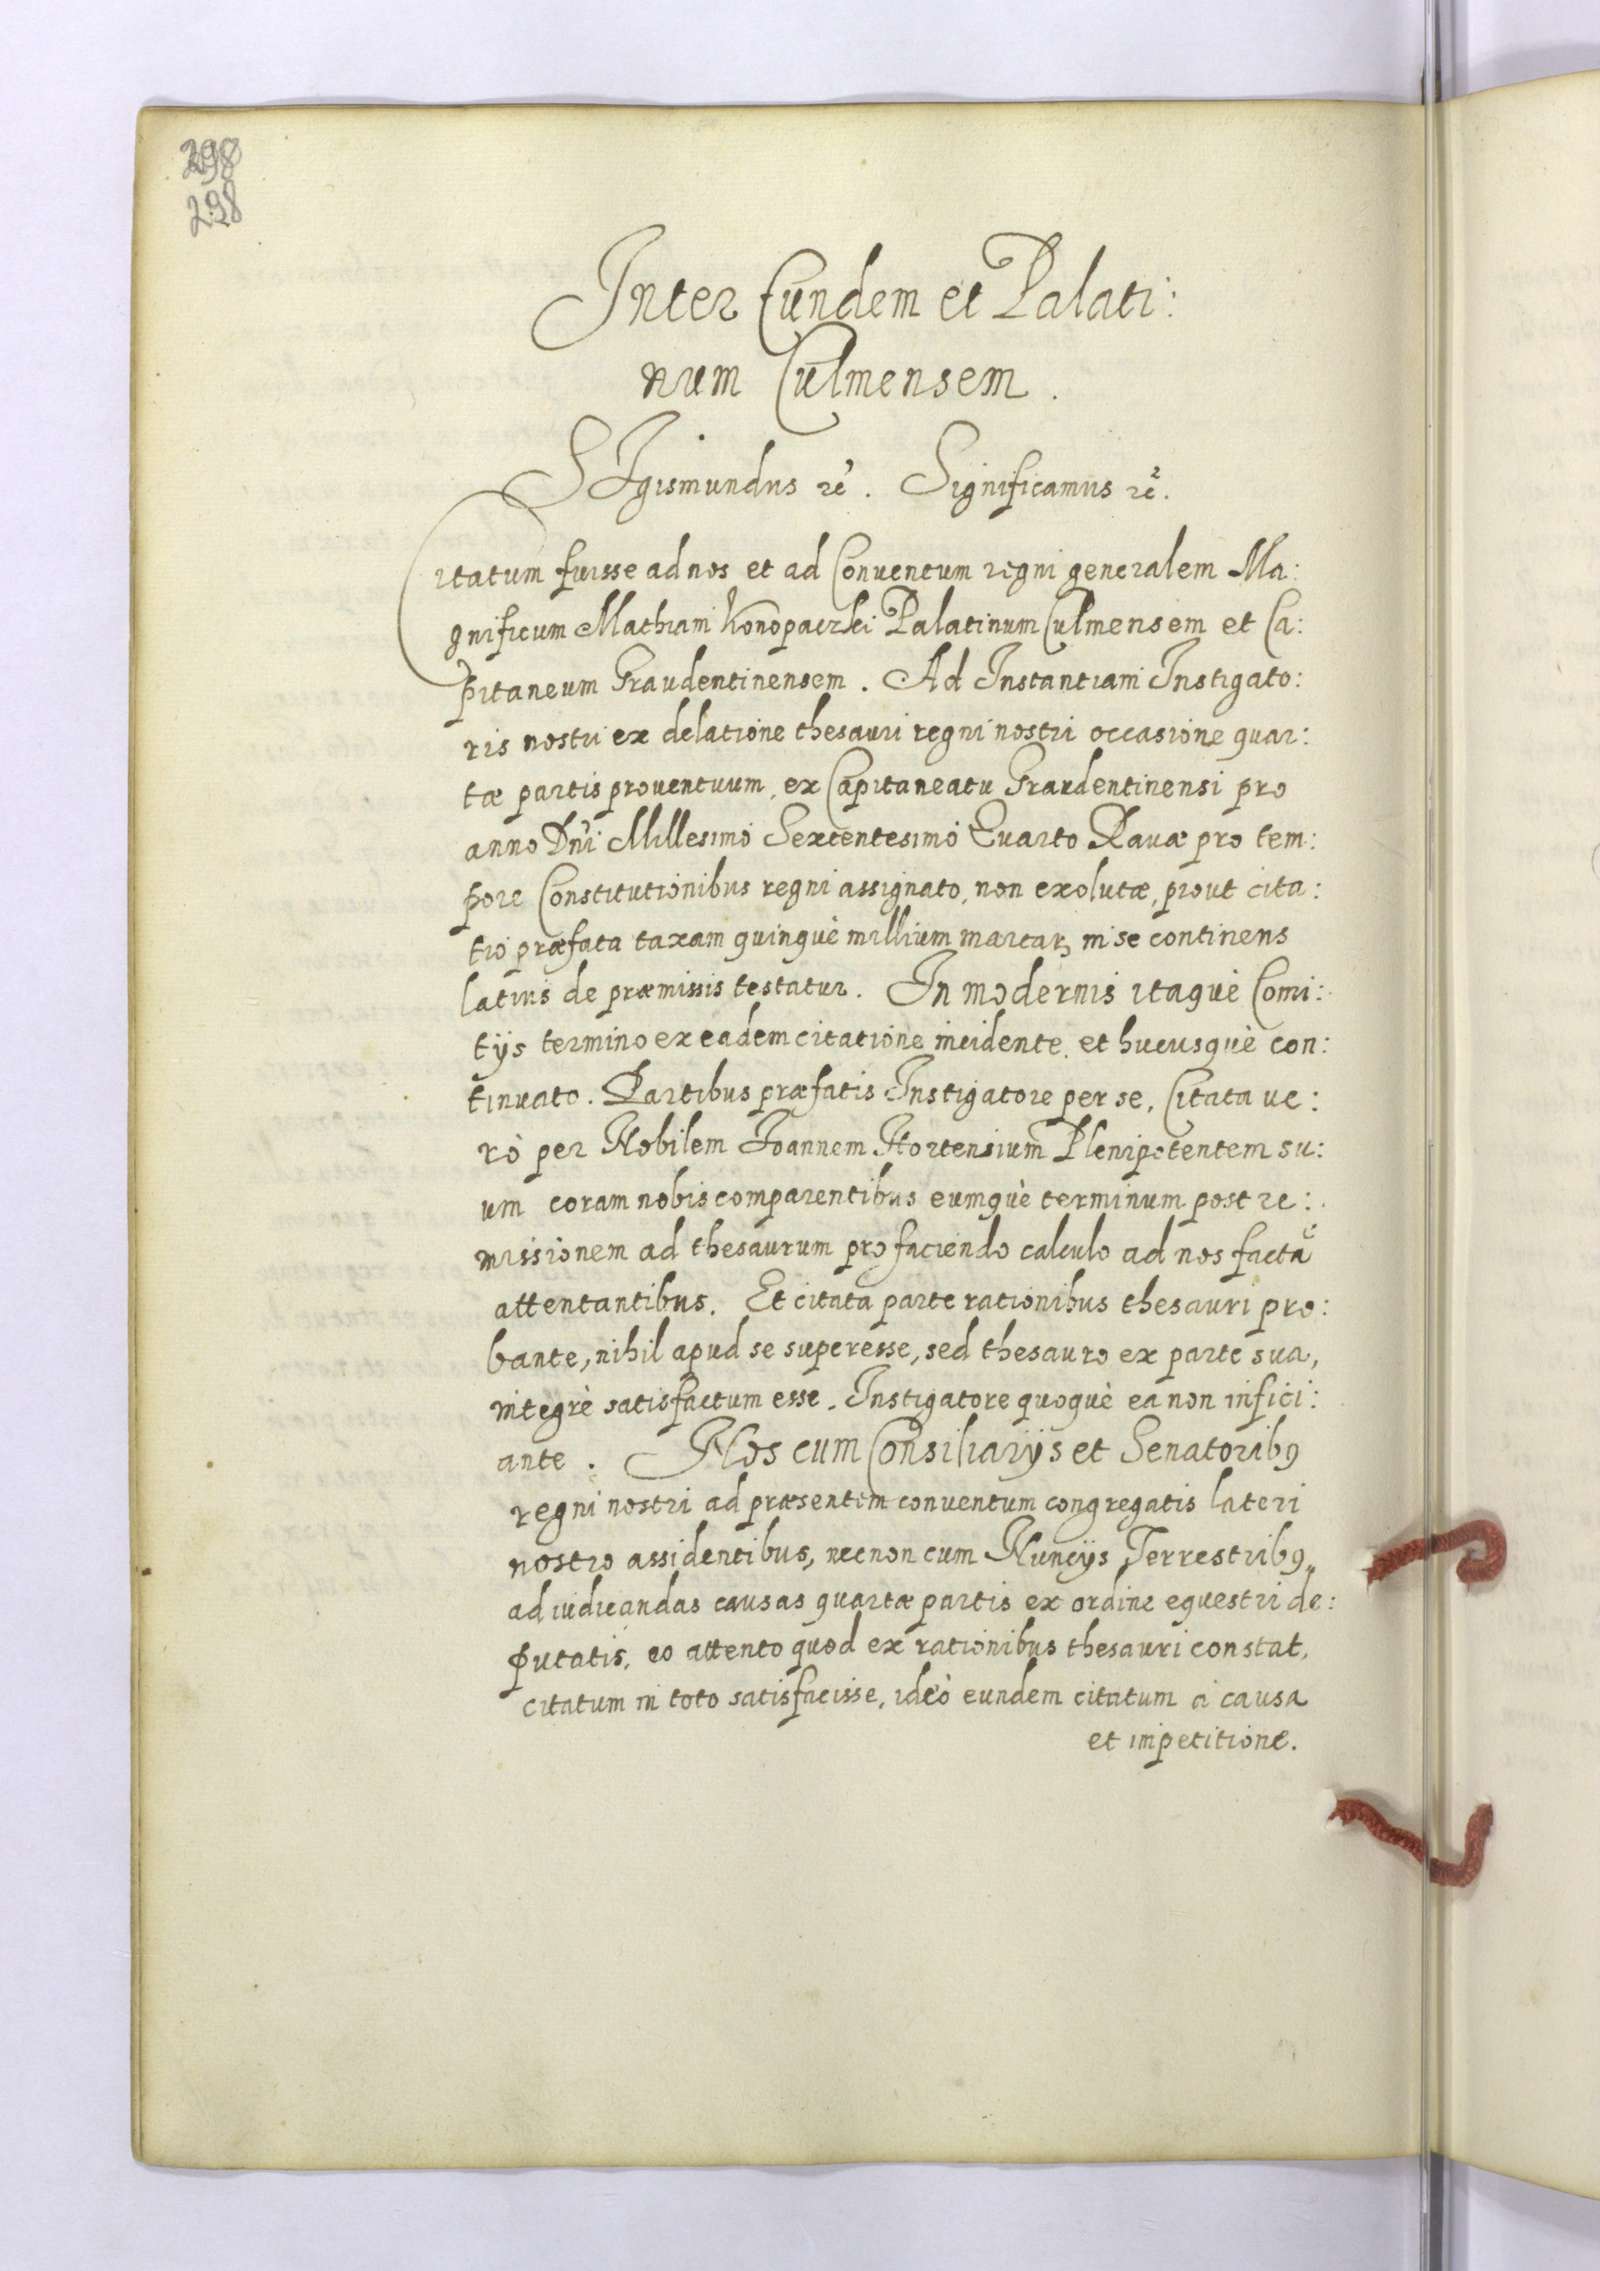 298
298
Inter Eundem et Palati:
num Culmensem.
SIgismundus rc̃. Significamus rc̃.
Citatum fuisse ad nos et ad Conuentum regni generalem Ma:
gnificum Mathiam Konopaczki Palatinum Culmensem et Ca:
pitaneum Graudentinensem. Ad Instantiam Instigato:
ris nostri ex delatione thesauri regni nostri occasione quar:
tæ partis prouentuum, ex Capitaneatu Graudentinensi pro
anno Dñi Millesimo Sexcentesimo Quarto Rauæ pro tem:
pore Constitutionibus regni assignato, non exolutæ, prout cita:
tio præfata taxam quinquè millium marcarꝝ in se continens
latius de præmissis testatur. In modernis itaquè Comi:
tijs termino ex eadem citatione incidente, et hucusquè con:
tinuato. Partibus præfatis Instigatore per se, Citata ue:
rò per Nobilem Joannem Hortensium Plenipotentem su:
um coram nobis comparentibus eumquè terminum post re:
missionem ad thesaurum pro faciendo calculo ad nos factã
attentantibus. Et citata parte rationibus thesauri pro:
bante, nihil apud se superesse, sed thesauro ex parte sua,
integrè satisfactum esse. Instigatore quoquè ea non infici:
ante. Nos cum Consiliarijs et Senatoribꝰ
regni nostri ad præsentem conuentum congregatis lateri
nostro assidentibus, necnon cum Nuncijs Terrestribꝰ
ad iudicandas causas quartæ partis ex ordine equestri de:
putatis, eo attento quod ex rationibus thesauri constat,
citatum in toto satisfecisse, ideò eundem citatum à causa
et impetitione.